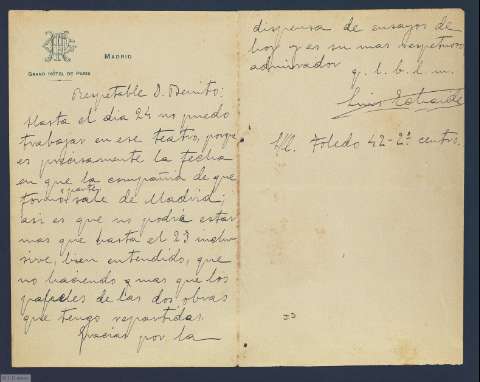 MADRID
GRAND HÔTEL DE PARIS
Respetable D. Benito:
Hasta el dia 24 no puedo
trabajar en ese teatro, porque
es precisamente la fecha
en que la compañia de que
formo parte sale de Madrid;
asi es que no podria estar
mas que hasta el 23 inclu-
sive, bien entendido, que
no haciendo mas que los
papeles de las dos obras
que tengo repartidas.
Gracias por la
dispensa de ensayos de
hoy y es su mas respetuoso
admirador
q. l. b. l. m.
Luis
S/C. Toledo 42-2º centro.